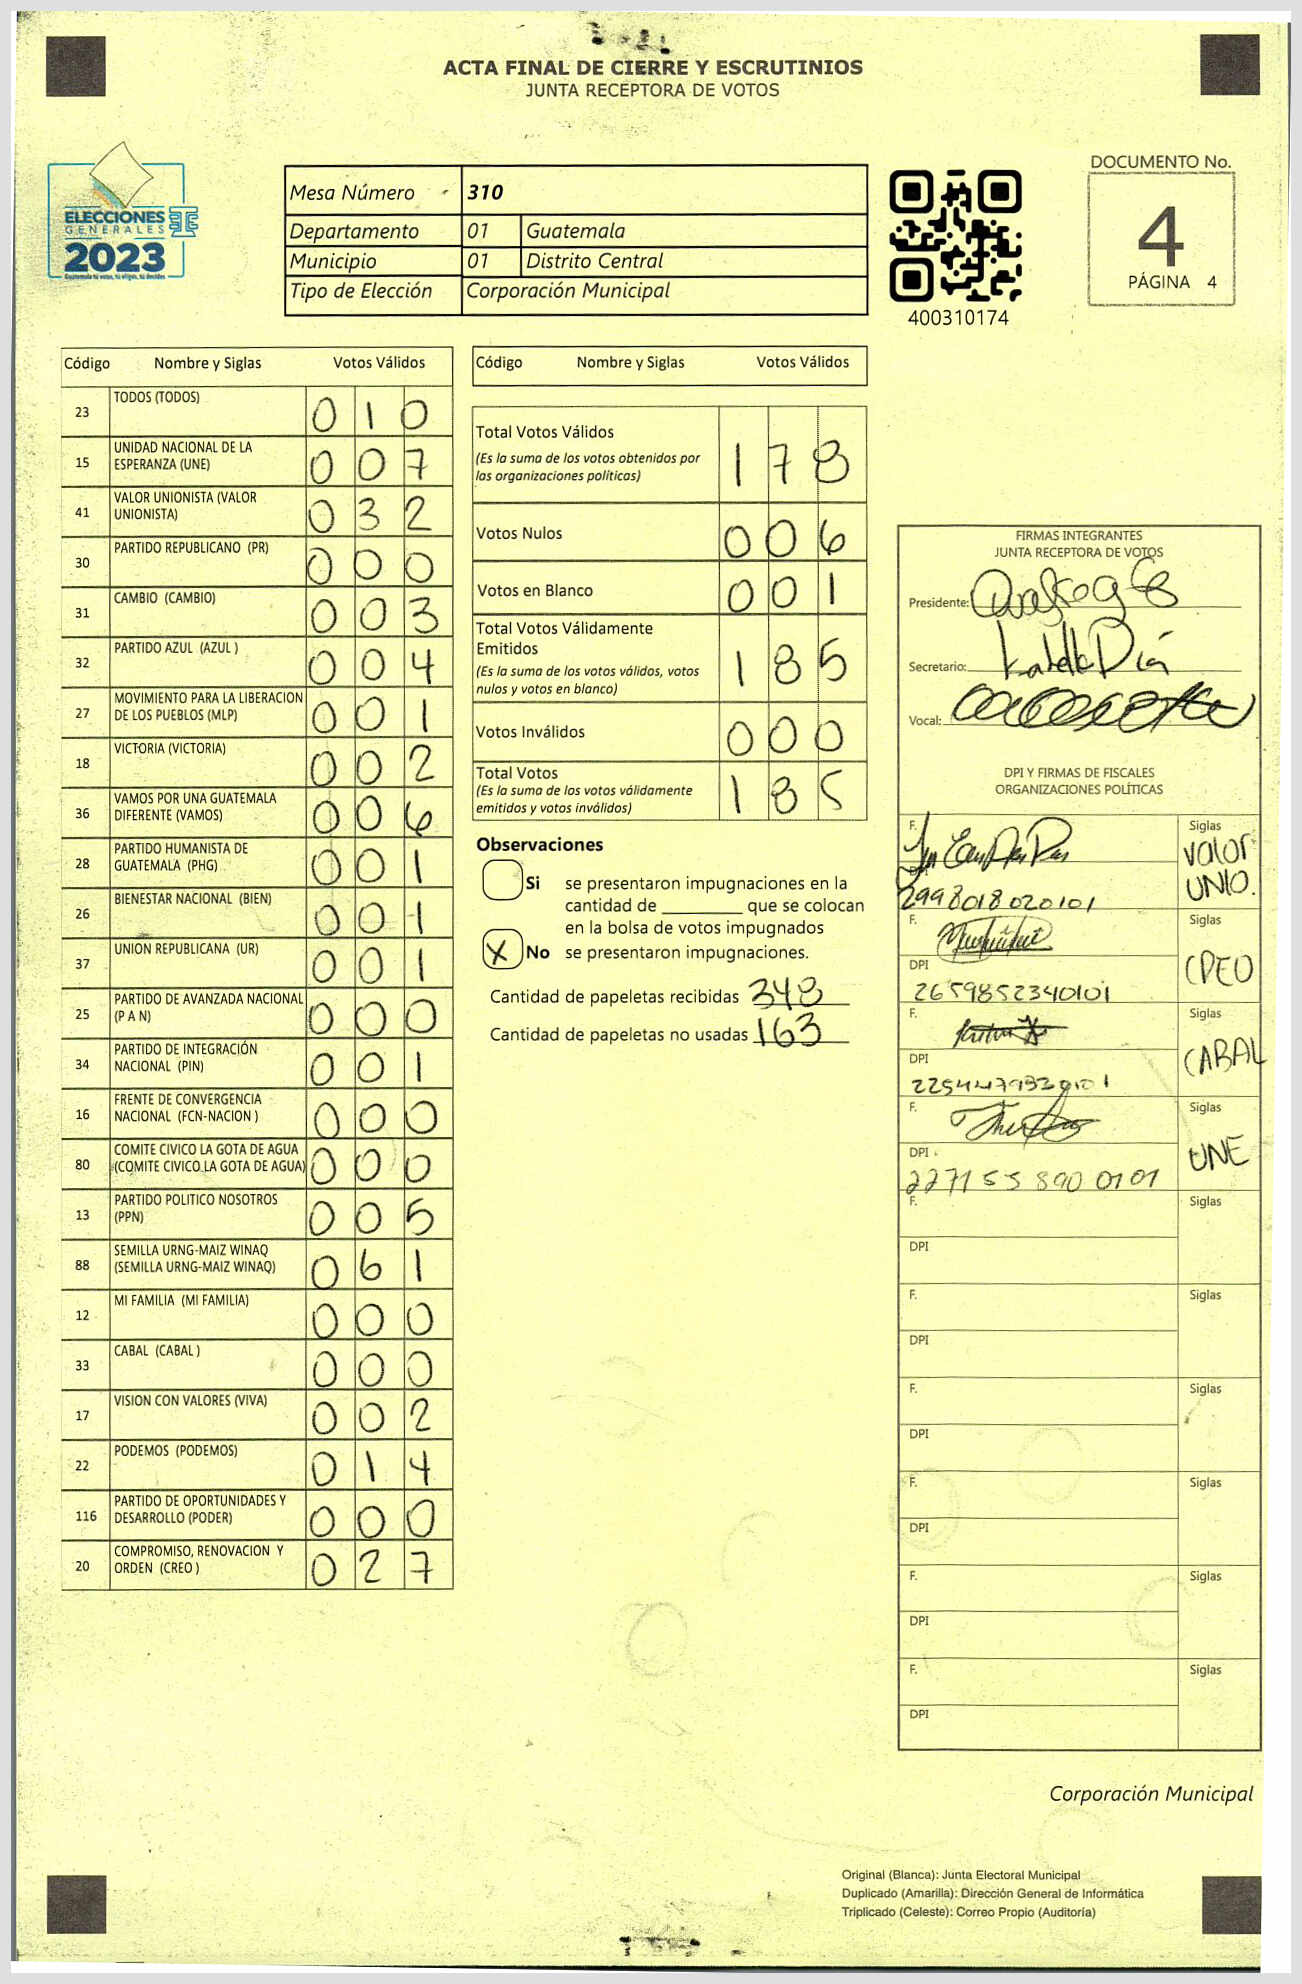 ACTA FINAL DE CIERRE Y ESCRUTINIOS
JUNTA RECEPTORA DE VOTOS
ELECCIONES
GENERALES
2023
Guatemala tú votas, tú eliges, tú decides
Mesa Número 310
Departamento 01 Guatemala
Municipio 01 Distrito Central
Tipo de Elección Corporación Municipal
400310174
DOCUMENTO No.
4
PÁGINA 4
Código Nombre y Siglas Votos Válidos
23 TODOS (TODOS) 0 1 0
15 UNIDAD NACIONAL DE LA
ESPERANZA (UNE) 0 0 7
41 VALOR UNIONISTA (VALOR
UNIONISTA) 0 3 2
30 PARTIDO REPUBLICANO (PR) 0 0 0
31 CAMBIO (CAMBIO) 0 0 3
32 PARTIDO AZUL (AZUL ) 0 0 4
27 MOVIMIENTO PARA LA LIBERACION
DE LOS PUEBLOS (MLP) 0 0 1
18 VICTORIA (VICTORIA) 0 0 2
36 VAMOS POR UNA GUATEMALA
DIFERENTE (VAMOS) 0 0 6
28 PARTIDO HUMANISTA DE
GUATEMALA (PHG) 0 0 1
26 BIENESTAR NACIONAL (BIEN) 0 0 1
37 UNION REPUBLICANA (UR) 0 0 1
25 PARTIDO DE AVANZADA NACIONAL
(P A N) 0 0 0
34 PARTIDO DE INTEGRACIÓN
NACIONAL (PIN) 0 0 1
16 FRENTE DE CONVERGENCIA
NACIONAL (FCN-NACION ) 0 0 0
80 COMITE CIVICO LA GOTA DE AGUA
(COMITE CIVICO LA GOTA DE AGUA) 0 0 0
13 PARTIDO POLITICO NOSOTROS
(PPN) 0 0 5
88 SEMILLA URNG-MAIZ WINAQ
(SEMILLA URNG-MAIZ WINAQ) 0 6 1
12 MI FAMILIA (MI FAMILIA) 0 0 0
33 CABAL (CABAL ) 0 0 0
17 VISION CON VALORES (VIVA) 0 0 2
22 PODEMOS (PODEMOS) 0 1 4
116 PARTIDO DE OPORTUNIDADES Y
DESARROLLO (PODER) 0 0 0
20 COMPROMISO, RENOVACION Y
ORDEN (CREO ) 0 2 7
Código Nombre y Siglas Votos Válidos
Total Votos Válidos
(Es la suma de los votos obtenidos por
las organizaciones políticas) 1 7 8
Votos Nulos 0 0 6
Votos en Blanco 0 0 1
Total Votos Válidamente
Emitidos
(Es la suma de los votos válidos, votos
nulos y votos en blanco) 1 8 5
Votos Inválidos 0 0 0
Total Votos
(Es la suma de los votos válidamente
emitidos y votos inválidos) 1 8 5
Observaciones
Si se presentaron impugnaciones en la
cantidad de ________ que se colocan
en la bolsa de votos impugnados
X No se presentaron impugnaciones.
Cantidad de papeletas recibidas 348
Cantidad de papeletas no usadas 163
FIRMAS INTEGRANTES
JUNTA RECEPTORA DE VOTOS
Presidente:
Secretario:
Vocal:
DPI Y FIRMAS DE FISCALES
ORGANIZACIONES POLÍTICAS
F. Siglas
valor
UNIO.
DPI
2998018020101
F. Siglas
CREO
DPI
2659852340101
F. Siglas
CABAL
DPI
F. Siglas
UNE
DPI
2271 55 890 0101
F. Siglas
DPI
F. Siglas
DPI
F. Siglas
DPI
F. Siglas
DPI
F. Siglas
DPI
F. Siglas
DPI
Corporación Municipal
Original (Blanca): Junta Electoral Municipal
Duplicado (Amarilla): Dirección General de Informática
Triplicado (Celeste): Correo Propio (Auditoría)